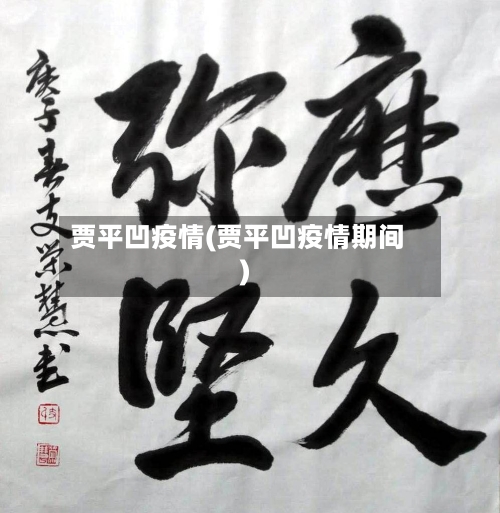 歷久
弥堅
庚子春支荣慧书
贾平凹疫情(贾平凹疫情期间
)